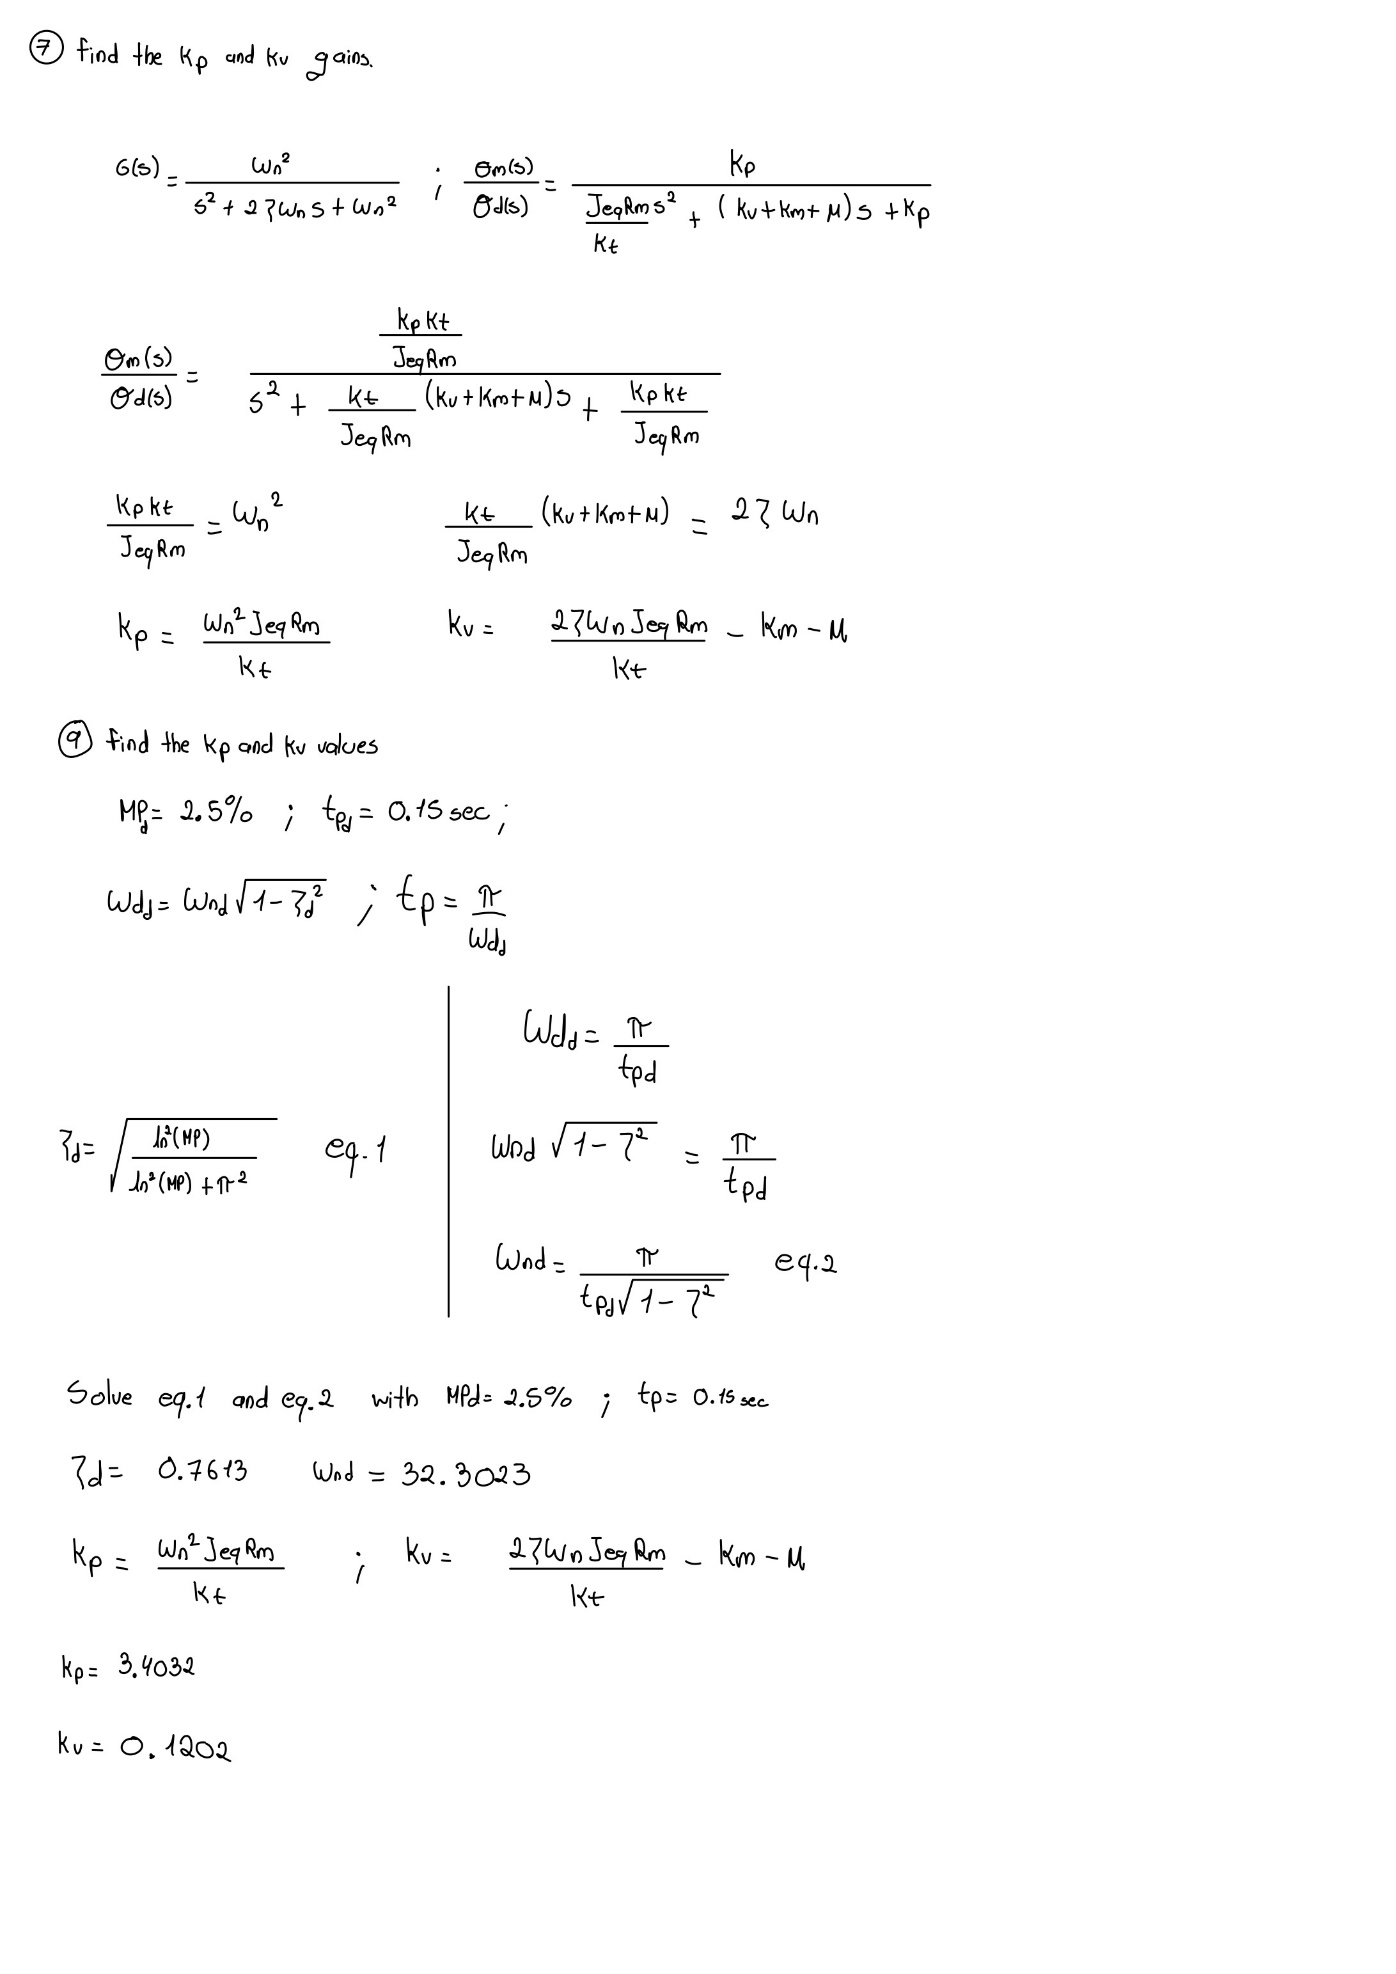 ⑦ find the Kp and Kv gains.
G(s) = ωn² / (s² + 2ζωn s + ωn²) ; θm(s)/θd(s) = Kp / ((JeqRm/Kt) s² + (Kv+Km+μ)s + Kp)
θm(s)/θd(s) = (KpKt/JeqRm) / (s² + (Kt/JeqRm)(Kv+Km+μ)s + KpKt/JeqRm)
KpKt/JeqRm = ωn²    (Kt/JeqRm)(Kv+Km+μ) = 2ζωn
Kp = ωn²JeqRm/Kt    Kv = 2ζωnJeqRm/Kt − Km − μ
⑨ find the Kp and Kv values
MPd = 2.5% ; tpd = 0.15 sec ;
ωdd = ωnd √(1−ζd²) ; tp = π/ωdd
ωdd = π/tpd
ζd = √(ln²(MP) / (ln²(MP) + π²))    eq.1
ωnd √(1−ζ²) = π/tpd
ωnd = π / (tpd √(1−ζ²))    eq.2
Solve eq.1 and eq.2 with MPd = 2.5% ; tp = 0.15 sec
ζd = 0.7613    ωnd = 32.3023
Kp = ωn²JeqRm/Kt ; Kv = 2ζωnJeqRm/Kt − Km − μ
Kp = 3.4032
Kv = 0.1202